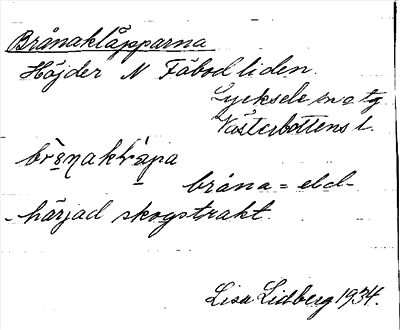 Brånaklåpparna
Höjder N Fäbodliden.
Lycksele sn o tg
Västerbottens l.
bråna = eld-
härjad skogstrakt.
Lisa Lidberg 1934.